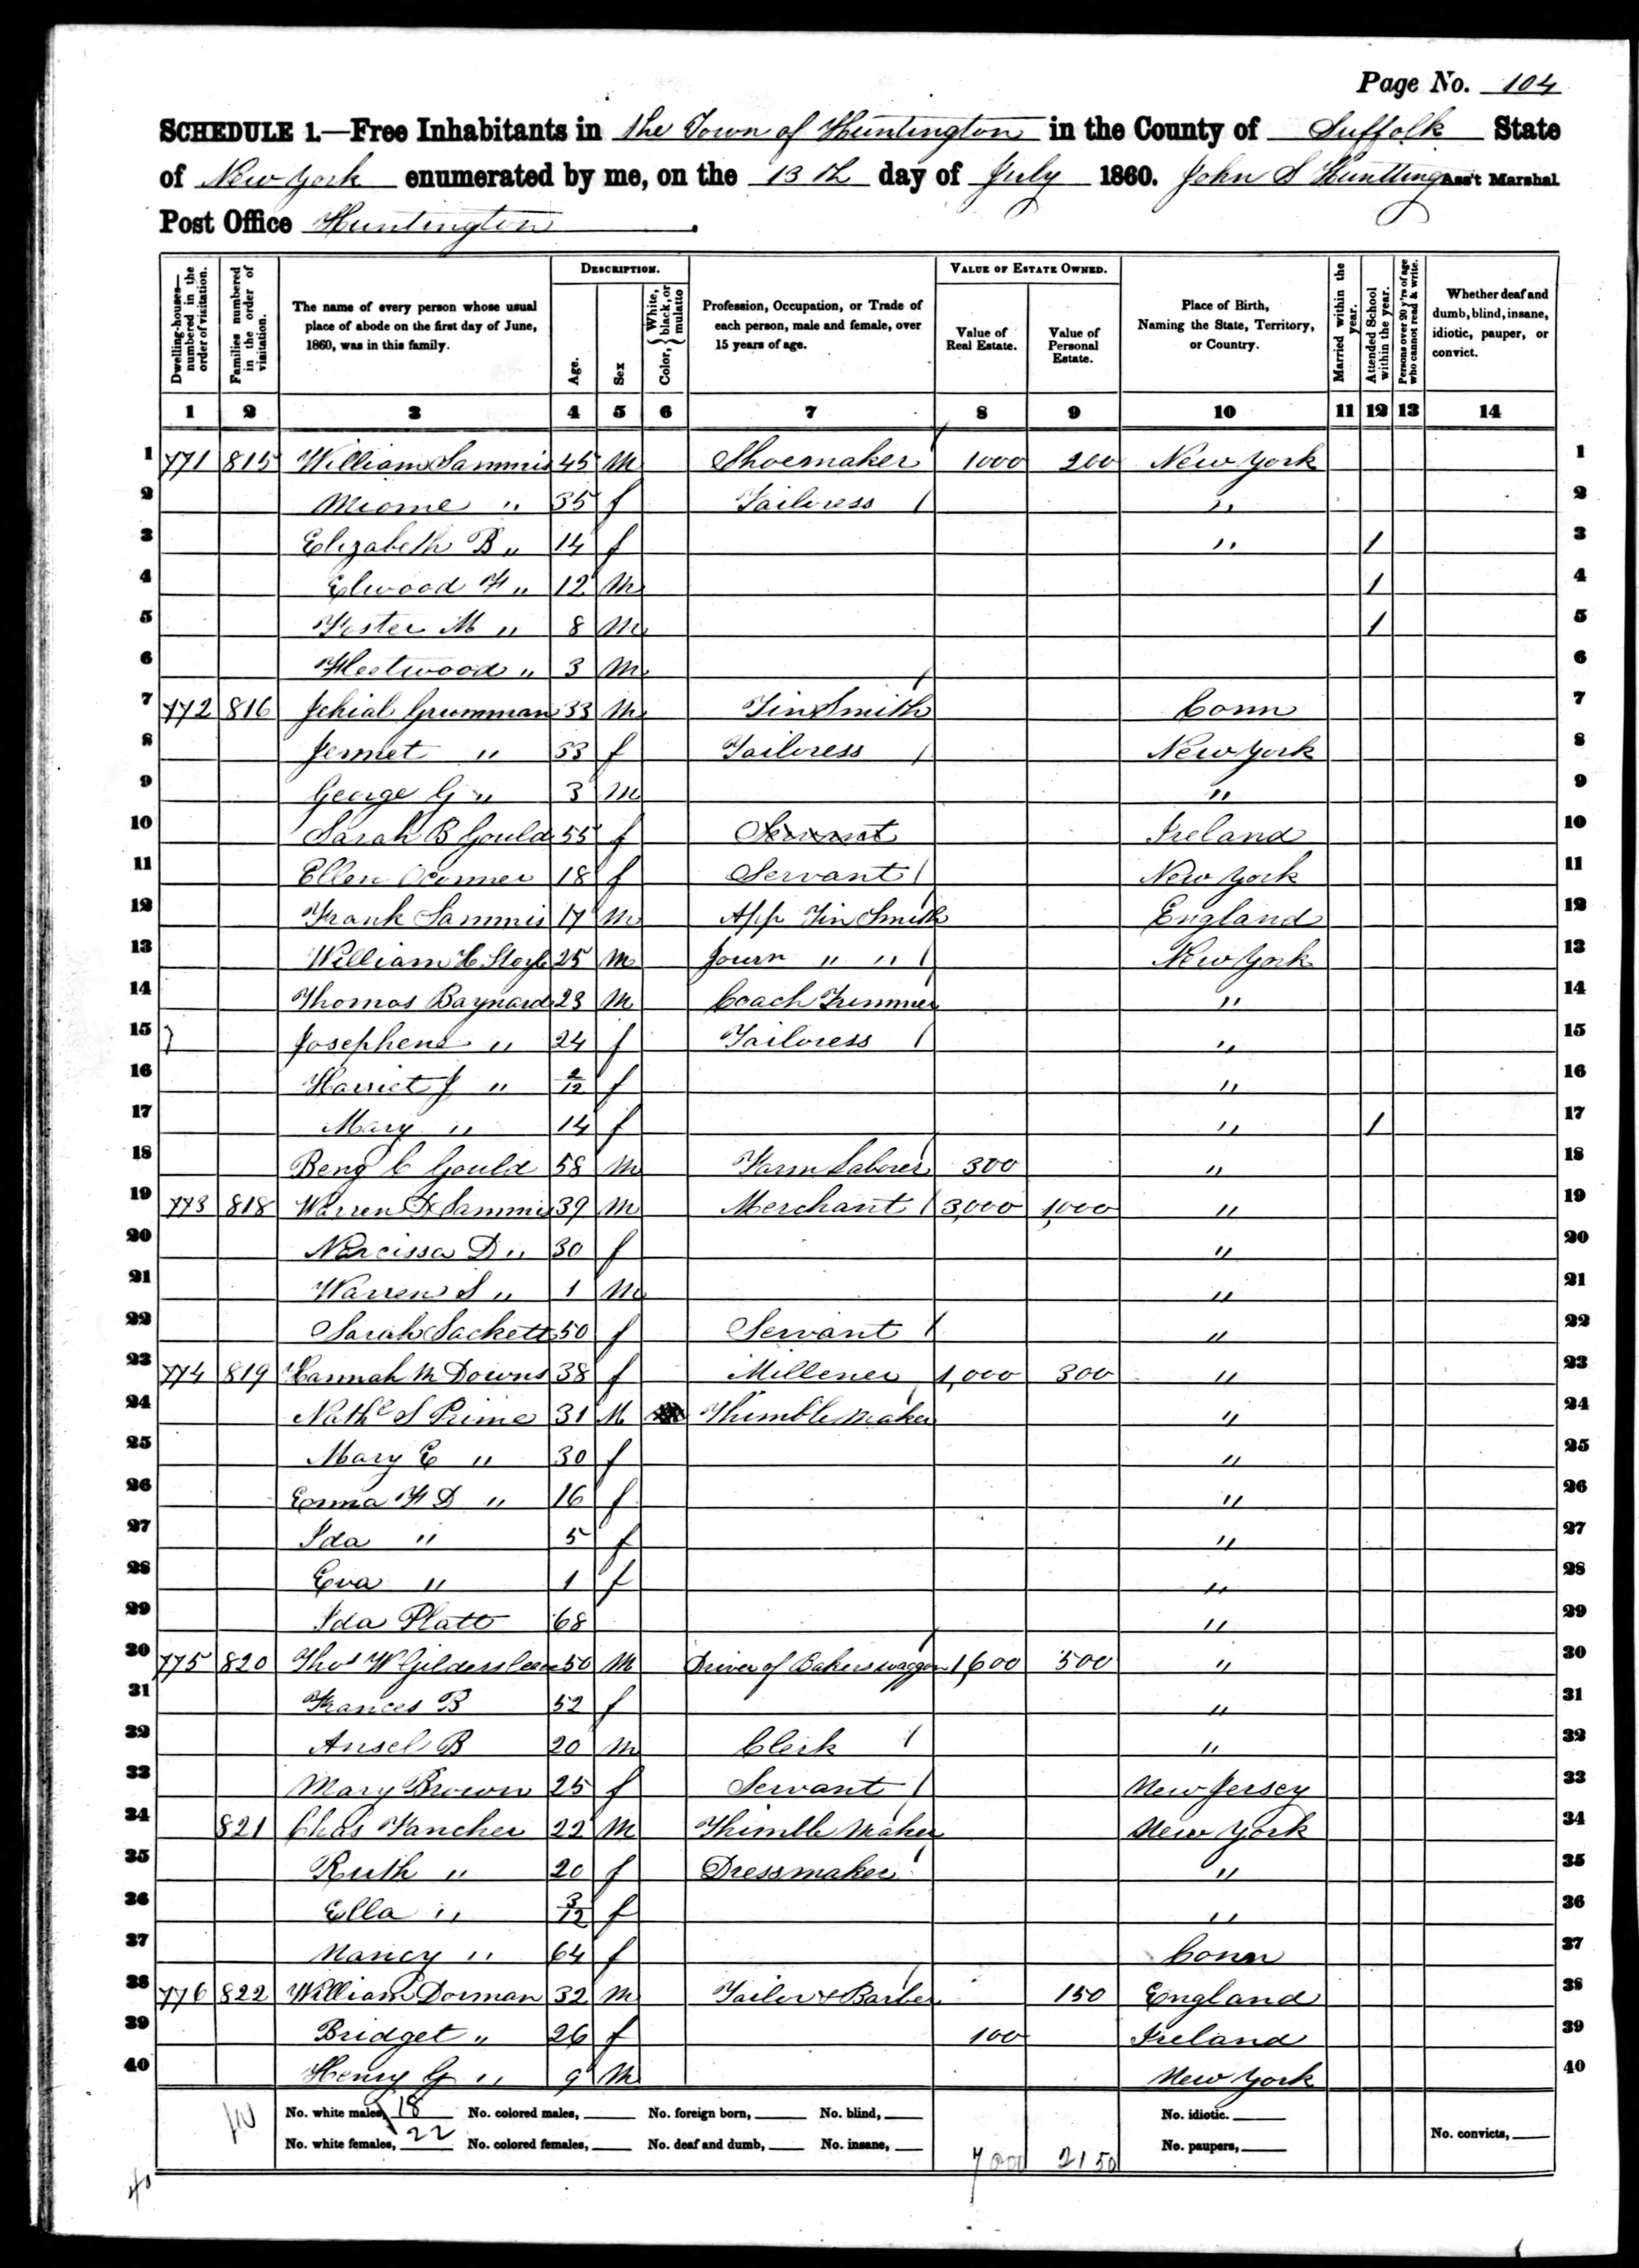 Page No. 104
SCHEDULE 1.—Free Inhabitants in the Town of Huntington in the County of Suffolk State
of New York enumerated by me, on the 13th day of July 1860. John S Huntting Ass't Marshal
Post Office Huntington.
DESCRIPTION. VALUE OF ESTATE OWNED.
Dwelling-houses—numbered in the order of visitation. Families numbered in the order of visitation. The name of every person whose usual place of abode on the first day of June, 1860, was in this family. Age. Sex Color, { White, black, or mulatto Profession, Occupation, or Trade of each person, male and female, over 15 years of age. Value of Real Estate. Value of Personal Estate. Place of Birth, Naming the State, Territory, or Country. Married within the year. Attended School within the year. Persons over 20 y'rs of age who cannot read & write. Whether deaf and dumb, blind, insane, idiotic, pauper, or convict.
1 2 3 4 5 6 7 8 9 10 11 12 13 14
1 771 815 William Sammis 45 M Shoemaker / 1000 200 New York 1
2 " 35 f Tailoress / " 2
3 Elizabeth B " 14 f " 1 3
4 Elwood F " 12 M 1 4
5 Foster M " 8 M 1 5
6 Fleetwood " 3 M 6
7 772 816 Jehial Grumman 33 M Tin Smith / Conn 7
8 Jennet " 33 f Tailoress / New York 8
9 George G " 3 M " 9
10 Sarah B Gould 55 f Servant Ireland 10
11 Ellen Oconner 18 f Servant / New York 11
12 Frank Sammis 17 M App Tin Smith England 12
13 William H 25 M Journ " " / New York 13
14 Thomas Baynard 23 M Coach Trimmer " 14
15 } Josephene " 24 f Tailoress / " 15
16 Harriet J " 2/12 f " 16
17 Mary " 14 f " 1 17
18 Benj C Gould 58 M Farm Laborer 300 " 18
19 773 818 Warren D Sammis 39 M Merchant / 3,000 1,000 " 19
20 Narcissa D " 30 f " 20
21 Warren S " 1 M " 21
22 Sarah Sackett 50 f Servant / " 22
23 774 819 Hannah M Downs 38 f Millener 1,000 300 " 23
24 Nathl S Prime 31 M Thimble Maker " 24
25 Mary E " 30 f " 25
26 Emma F D " 16 f " 26
27 Ida " 5 f " 27
28 Eva " 1 f " 28
29 Ida Platt 68 " 29
30 775 820 Thos W Gildersleeve 50 M Driver of Bakers waggon 1,600 500 " 30
31 Frances B 52 f " 31
32 Ansel B 20 M Clerk / " 32
33 Mary Brown 25 f Servant / New Jersey 33
34 821 Chas Fancher 22 M Thimble Maker New York 34
35 Ruth " 20 f Dressmaker / " 35
36 Ella " 3/12 f " 36
37 Nancy " 64 f Conn 37
38 776 822 William Dorman 32 M Tailor & Barber 150 England 38
39 Bridget " 26 f 100 Ireland 39
40 Henry G " 9 M New York 40
No. white males, 18 No. colored males, No. foreign born, No. blind, No. idiotic.
No. white females, 22 No. colored females, No. deaf and dumb, No. insane, 7000 2150 No. paupers, No. convicts,